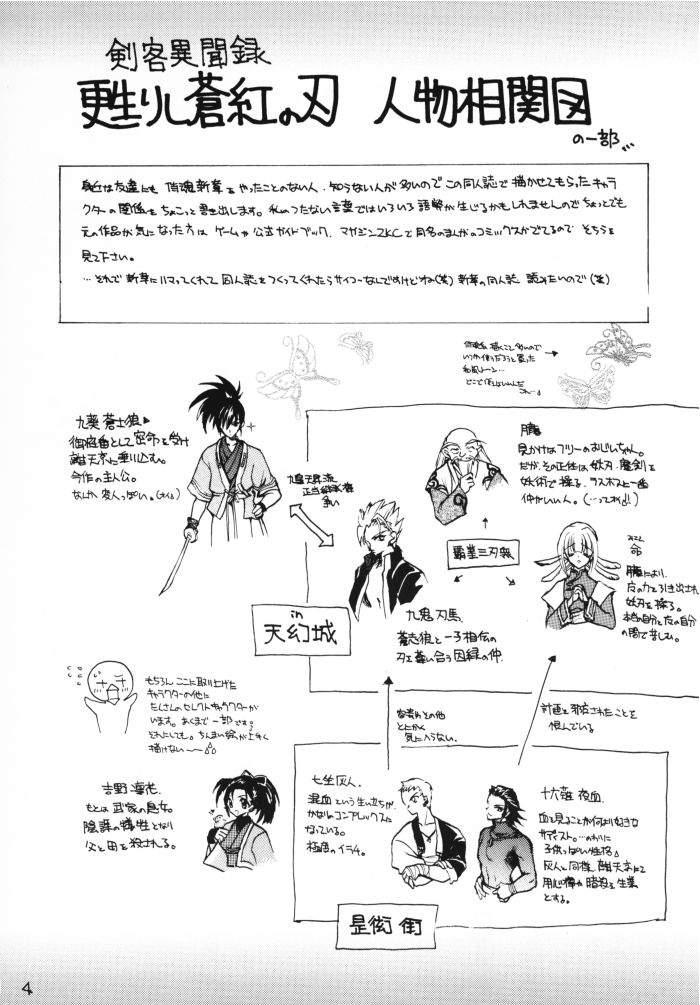 剣客異聞録
甦りし蒼紅の刃 人物相関図
の一部…
身近な友達にも 侍魂新章をやったことのない人、知らない人が多いのでこの同人誌で描かせてもらったキャラ
クターの関係をちょこっと書き出します。私のつたない言葉ではいろいろ誤解が生じるかもしれませんのでちょっとでも
元の作品が気になった方は ゲームや公式ガイドブック、マガジンZKCで同名のまんがのコミックスがでてるので そちらを
見て下さい。
…それで新章にハマってくれて 同人誌をつくってくれたらサイコーなんですけどね(笑)新章の同人誌 読みたいので(笑)
九葵 蒼志狼
御庭番として密命を受け
離天京に乗り込む。
今作の主人公。
なんか 変人っぽい。
九鬼天昇流
正当継承者
争い
朧
見かけはフリーのおじいちゃん。
だが、その正体は妖刃・魔剣を
妖術で操る、ラスボスと一番
仲がいい人。
覇業三刃衆
みこと
命
朧により
負の力を引き出され
妖刃を操る。
本当の自分と負の自分
の間で苦しむ。
九鬼 刃馬
蒼志狼と一子相伝の
刃を奪い合う因縁の仲。
in
天幻城
もちろん ここに取り上げた
キャラクターの他に
たくさんのセレクトキャラクターが
います。あくまで一部です。
計画を邪魔されたことを
恨んでいる
とにかく
気に入らない。
吉野 凜花
もとは武家の息女。
陰謀の犠牲となり
父と母を殺される。
七坐 灰人
混血という生い立ちが
かなりのコンプレックスに
なっている。
極度のイラチ。
十六夜 夜血
血を見ることが何より好きな
サディスト。…のわりに
子供っぽい性格
灰人と同様 離天京にて
用心棒や暗殺を生業
とする。
是衒街
4